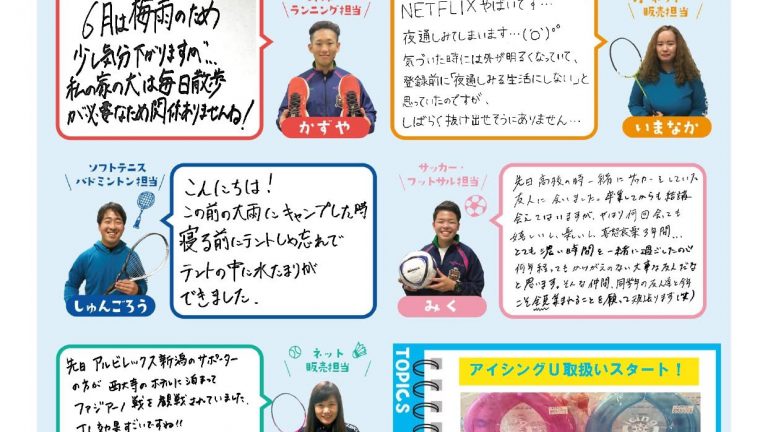 ランニング担当
6月は梅雨のため
少し気分下がりますが…
私の家の犬は毎日散歩
が必要なため関係ありませんね!
かずや
NETFLIXやばいです…
夜通しみてしまいます…
気づいた時には外が明るくなっていて、
登録前に「夜通しみる生活にしない」と
思っていたのですが、
しばらく抜け出せそうにありません…
ネット
販売担当
いまなか
ソフトテニス
バドミントン担当
しゅんごろう
こんにちは!
この前の大雨にキャンプした時
寝る前にテントしめ忘れて
テントの中に水たまりが
できました.
サッカー・
フットサル担当
みく
先日高校の時一緒にサッカーをしていた
友人に会いました。卒業してからも結構
会えてはいますが、やはり何回会っても
嬉しいし、楽しいし、
とても濃い時間を一緒に過ごしたので
何年経ってもかけがえのない大事な友人だな
と思います。そんな仲間、同学年の友人達と今年
こそ全員集まれることを願って頑張ります(笑)
先日アルビレックス新潟のサポーター
の方が西大寺のホテルに泊まって
ファジアーノ戦を観戦されていました。
効果すごいですね!!
ネット
販売担当
TOPICS
アイシングU取扱いスタート!